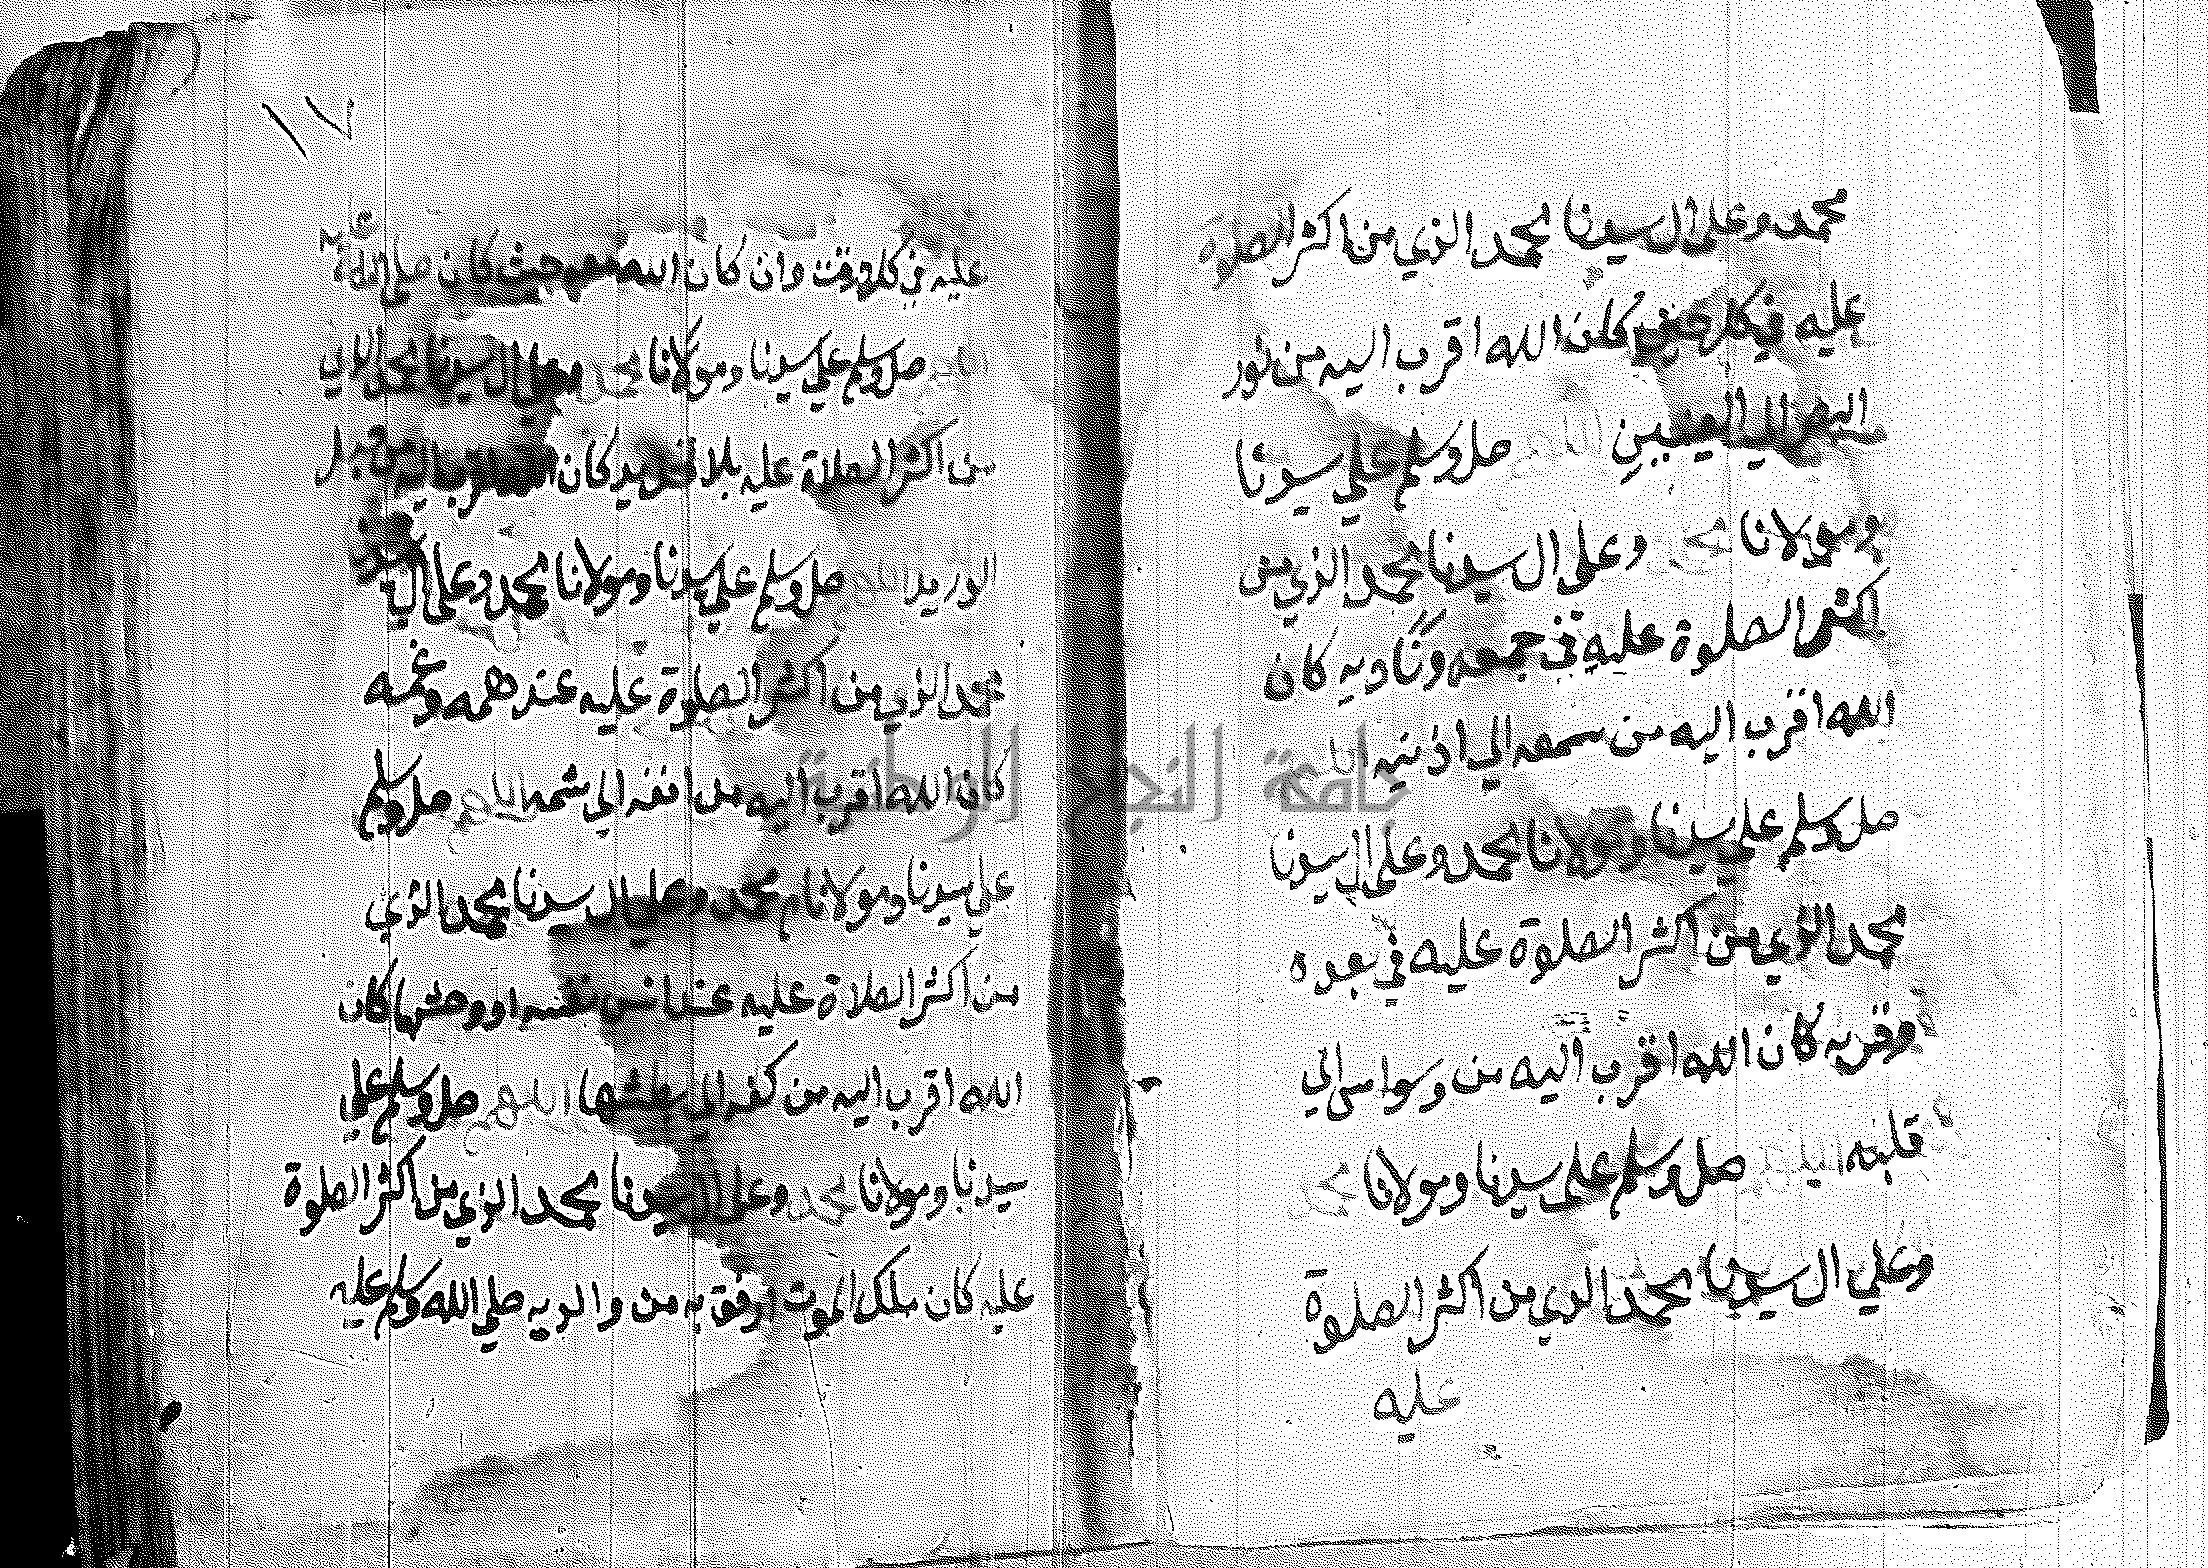 محمد وعلى ال سيدنا محمد الذي من اكثر الصلوة
عليه في كل حين كان الله اقرب اليه من نور
البصر الي العينين صل وسلم علي سيدنا
ومولانا محمد وعلى ال سيدنا محمد الذي من
اكثر الصلوة عليه في جمعه وناديه كان
الله اقرب اليه من سمعه الي اذنيه
صل وسلم علي سيدنا ومولانا محمد وعلى ال سيدنا
محمد الذي من اكثر الصلوة عليه في بعده
وقربه كان الله اقرب اليه من وسواس الي
قلبه اللهم صل وسلم على سيدنا ومولانا محمد
وعلي ال سيدنا محمد الذي من اكثر الصلوة
عليه
١٧
عليه في كل وقت وان كان الله معه حيث كان
صل وسلم علي سيدنا ومولانا محمد وعلى ال سيدنا محمد الذي
من اكثر الصلاة عليه بلا كان اقرب اليه من
الوريد اللهم صل وسلم علي سيدنا ومولانا محمد وعلى ال
محمد الذي من اكثر الصلوة عليه عند همه وغمه
كان الله اقرب اليه من انفه الي شمه اللهم صل وسلم
علي سيدنا ومولانا محمد وعلى ال سيدنا محمد الذي
من اكثر الصلاة عليه عند نفسه او وحشتها كان
الله اقرب اليه من اللهم صل وسلم علي
سيدنا ومولانا محمد وعلى ال سيدنا محمد الذي من اكثر الصلوة
عليه كان ملك الموت ارفق به من والديه صلي الله وسلم عليه
جامعة النجاح الوطنية